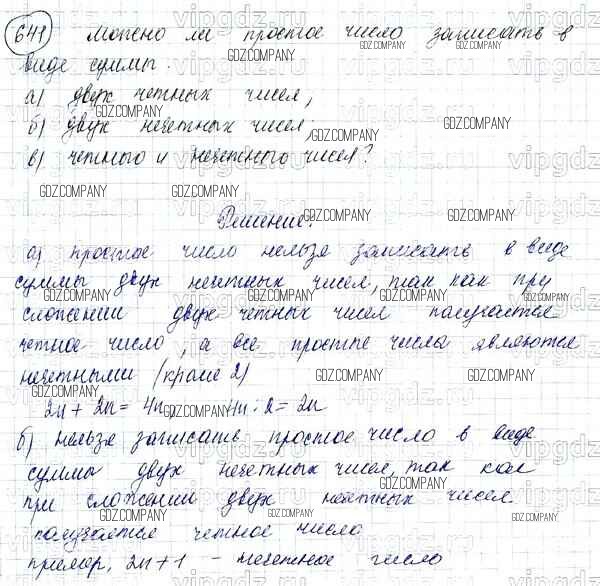 641 Можно ли простое число записать в
виде суммы:
а) двух четных чисел,
б) двух нечетных чисел;
в) четного и нечетного чисел?
Решение.
а) простое число нельзя записать в виде
суммы двух нечетных чисел, так как при
сложении двух четных чисел получается
четное число, а все простые числа являются
нечетными (кроме 2)
2n + 2n = 4n, 4n : 2 = 2n
б) нельзя записать простое число в виде
суммы двух нечетных чисел, так как
при сложении двух нечетных чисел
получается четное число
пример, 2n + 1 - нечетное число